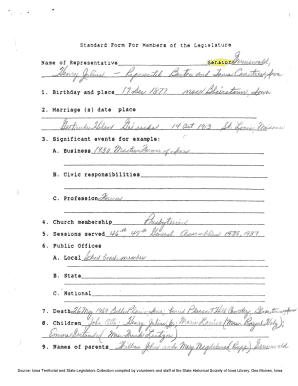 Standard Form For Members of the Legislature
Name of Representative Senator Grunewald,
Henry Julius - Represented Benton and Iowa Counties, Iowa
1. Birthday and place 17 Dec 1877 near Blairstown, Iowa
2. Marriage (s) date place
14 Oct 1913 St. Louis, Missouri
3. Significant events for example:
A. Business 1930 Master Farmer of Iowa
B. Civic responsibilities
C. Profession Farmer
4. Church membership Presbyterian
5. Sessions served 46th, 47th General Assemblies 1935, 1937
6. Public Offices
A. Local School board member
B. State
C. National
7. Death May 1969 Belle Plaine, Iowa Pleasant Hill Cemetery
8. Children John Otto; Henry Julius, Jr.
9. Names of parents William John and Mary Magdalena Grunewald
Source: Iowa Territorial and State Legislators Collection compiled by volunteers and staff at the State Historical Society of Iowa Library, Des Moines, Iowa.